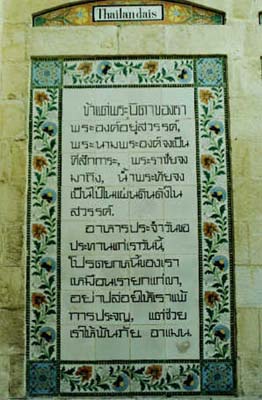 Thailandais
ข้าแต่พระบิดาของตา
พระองค์อยู่สวรรค์,
พระนามพระองค์จงเป็น
ที่สักการะ, พระราชัยจง
มาถึง, น้ำพระทัยจง
เป็นไปในแผ่นดินดังใน
สวรรค์.
อาหารประจำวันขอ
ประทานแก่เราวันนี้,
โปรดยกหนี้ของเรา
เหมือนเรายกแก่เขา,
อย่าปล่อยให้เราแพ้
การประจญ, แต่ช่วย
เราให้พ้นภัย. อาแมน.